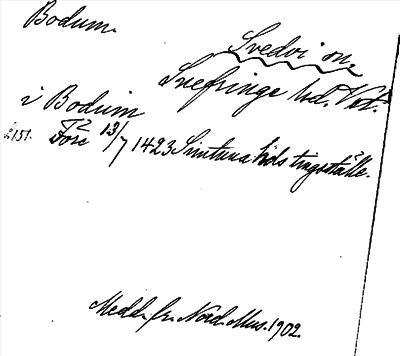 Bodum.
Svedvi sn.
Snefringe hd. Vst.
i Bodum
Före 13/7 1423 Simtuna hds tingsställe.
Medd. fr. Nord. Mus. 1902.